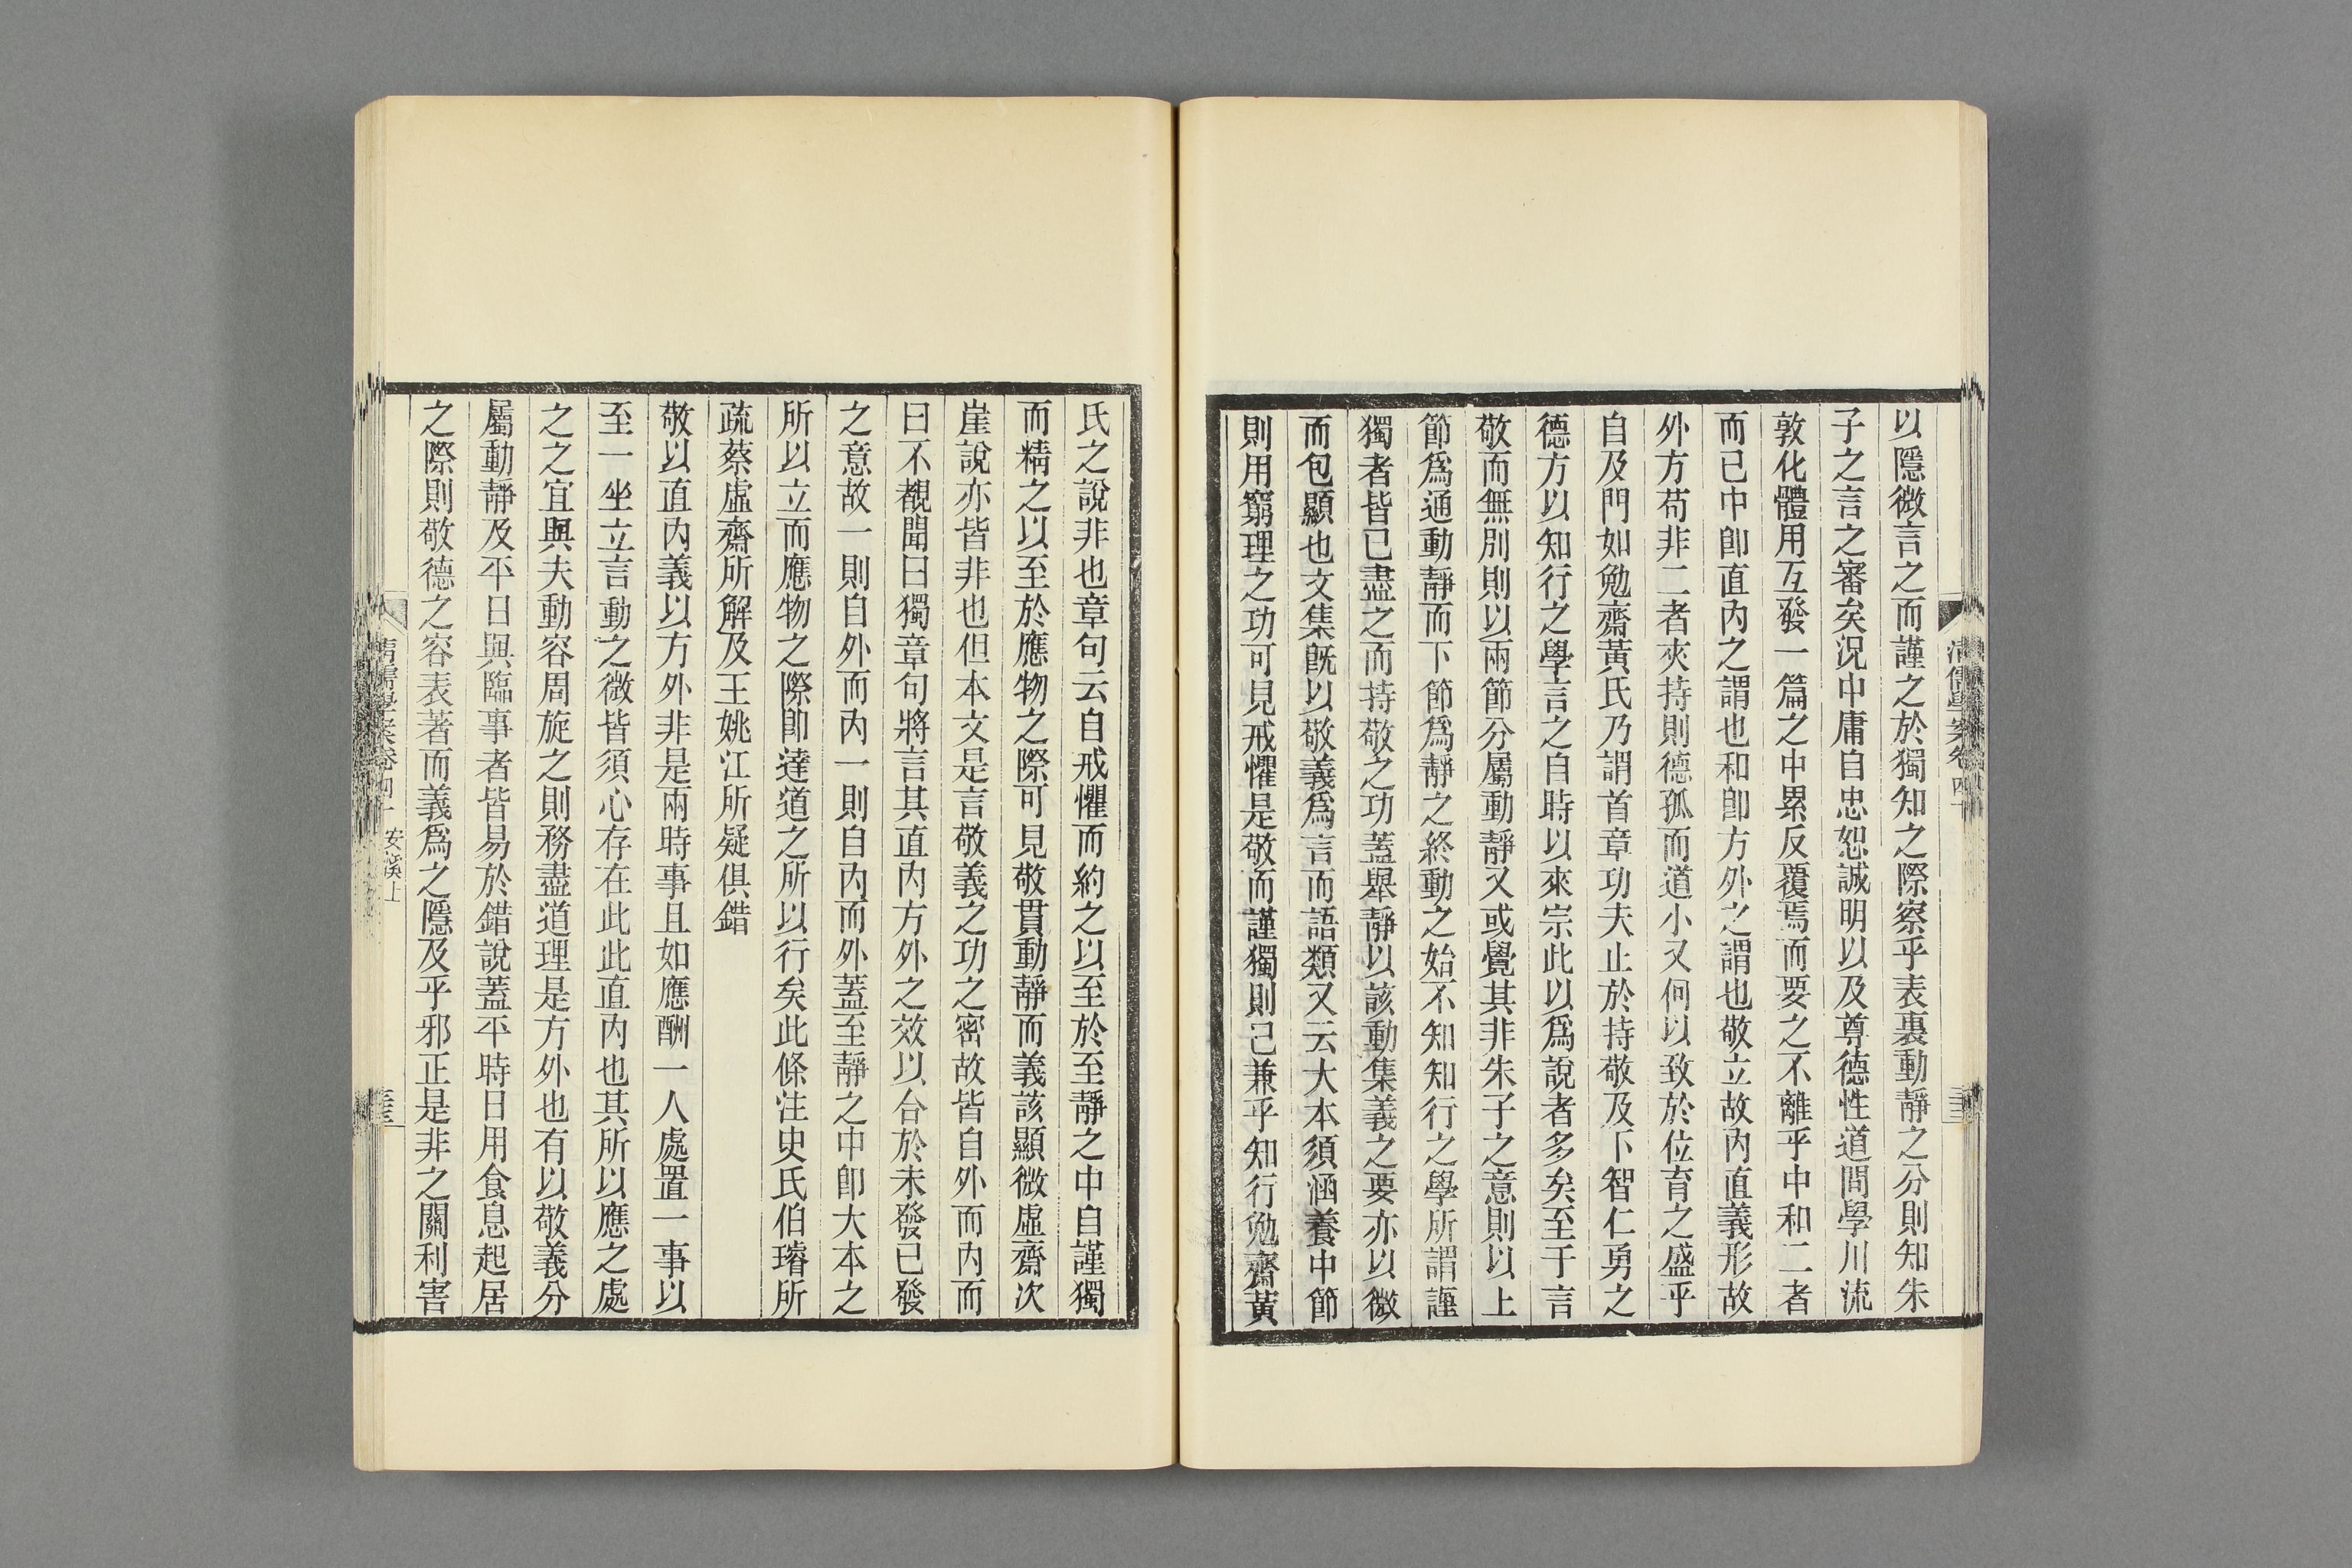 以隱微言之而謹之於獨知之際察乎表裏動靜之分則知朱
子之言之審矣況中庸自忠恕誠明以及尊德性道問學川流
敦化體用互發一篇之中累反覆焉而要之不離乎中和二者
而已中卽直內之謂也和卽方外之謂也敬立故內直義形故
外方苟非二者夾持則德孤而道小又何以致於位育之盛乎
自及門如勉齋黃氏乃謂首章功夫止於持敬及下智仁勇之
德方以知行之學言之自時以來宗此以爲說者多矣至于言
敬而無別則以兩節分屬動靜又或覺其非朱子之意則以上
節爲通動靜而下節爲靜之終動之始不知知行之學所謂謹
獨者皆已盡之而持敬之功蓋舉靜以該動集義之要亦以微
而包顯也文集旣以敬義爲言而語類又云大本須涵養中節
則用窮理之功可見戒懼是敬而謹獨則已兼乎知行勉齋黃
氏之說非也章句云自戒懼而約之以至於至靜之中自謹獨
而精之以至於應物之際可見敬貫動靜而義該顯微虛齋次
崖說亦皆非也但本文是言敬義之功之密故皆自外而內而
曰不覩聞曰獨章句將言其直內方外之效以合於未發已發
之意故一則自外而內一則自內而外蓋至靜之中卽大本之
所以立而應物之際卽達道之所以行矣此條注史氏伯璿所
疏蔡虛齋所解及王姚江所疑俱錯
敬以直內義以方外非是兩時事且如應酬一人處置一事以
至一坐立言動之微皆須心存在此此直內也其所以應之處
之之宜與夫動容周旋之則務盡道理是方外也有以敬義分
屬動靜及平日與臨事者皆易於錯說蓋平時日用食息起居
之際則敬德之容表著而義爲之隱及乎邪正是非之關利害
清儒學案卷四十 安溪上